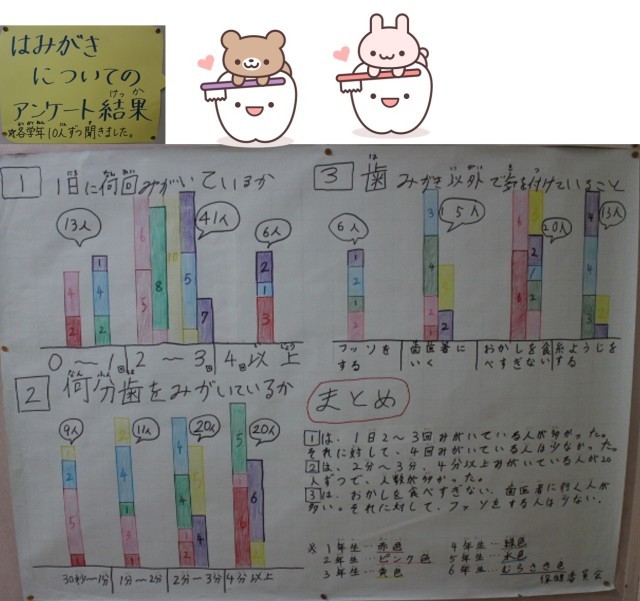 はみがき
についての
アンケート結果
けっか
※各学年10人ずつ聞きました。
1 1日に何回みがいているか
13人
41人
6人
4
2
1
4
2
6
5
8
10
5
5
7
2
1
3
0～1回
2～3回
4回以上
3 歯みがき以外で気を付けていること
6人
15人
20人
13人
フッソをする
歯医者にいく
おかしを食べすぎない
糸ようじをする
2 何分歯をみがいているか
9人
11人
20人
20人
30秒～1分
1分～2分
2分～3分
4分以上
まとめ
1は、1日2～3回みがいている人が多かった。
それに対して、4回みがいている人は少なかった。
2は、2分～3分、4分以上みがいている人が20
人ずつで、人数が多かった。
3は、おかしを食べすぎない、歯医者に行く人が
多い。それに対して、フッソをする人は少ない。
※1年生…赤色
2年生…ピンク色
3年生…黄色
4年生…緑色
5年生…水色
6年生…むらさき色
保健委員会